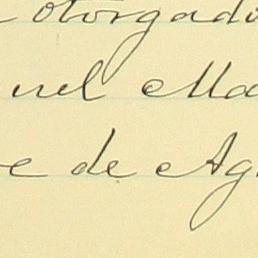 otorgado
nel Ma
e de Ag